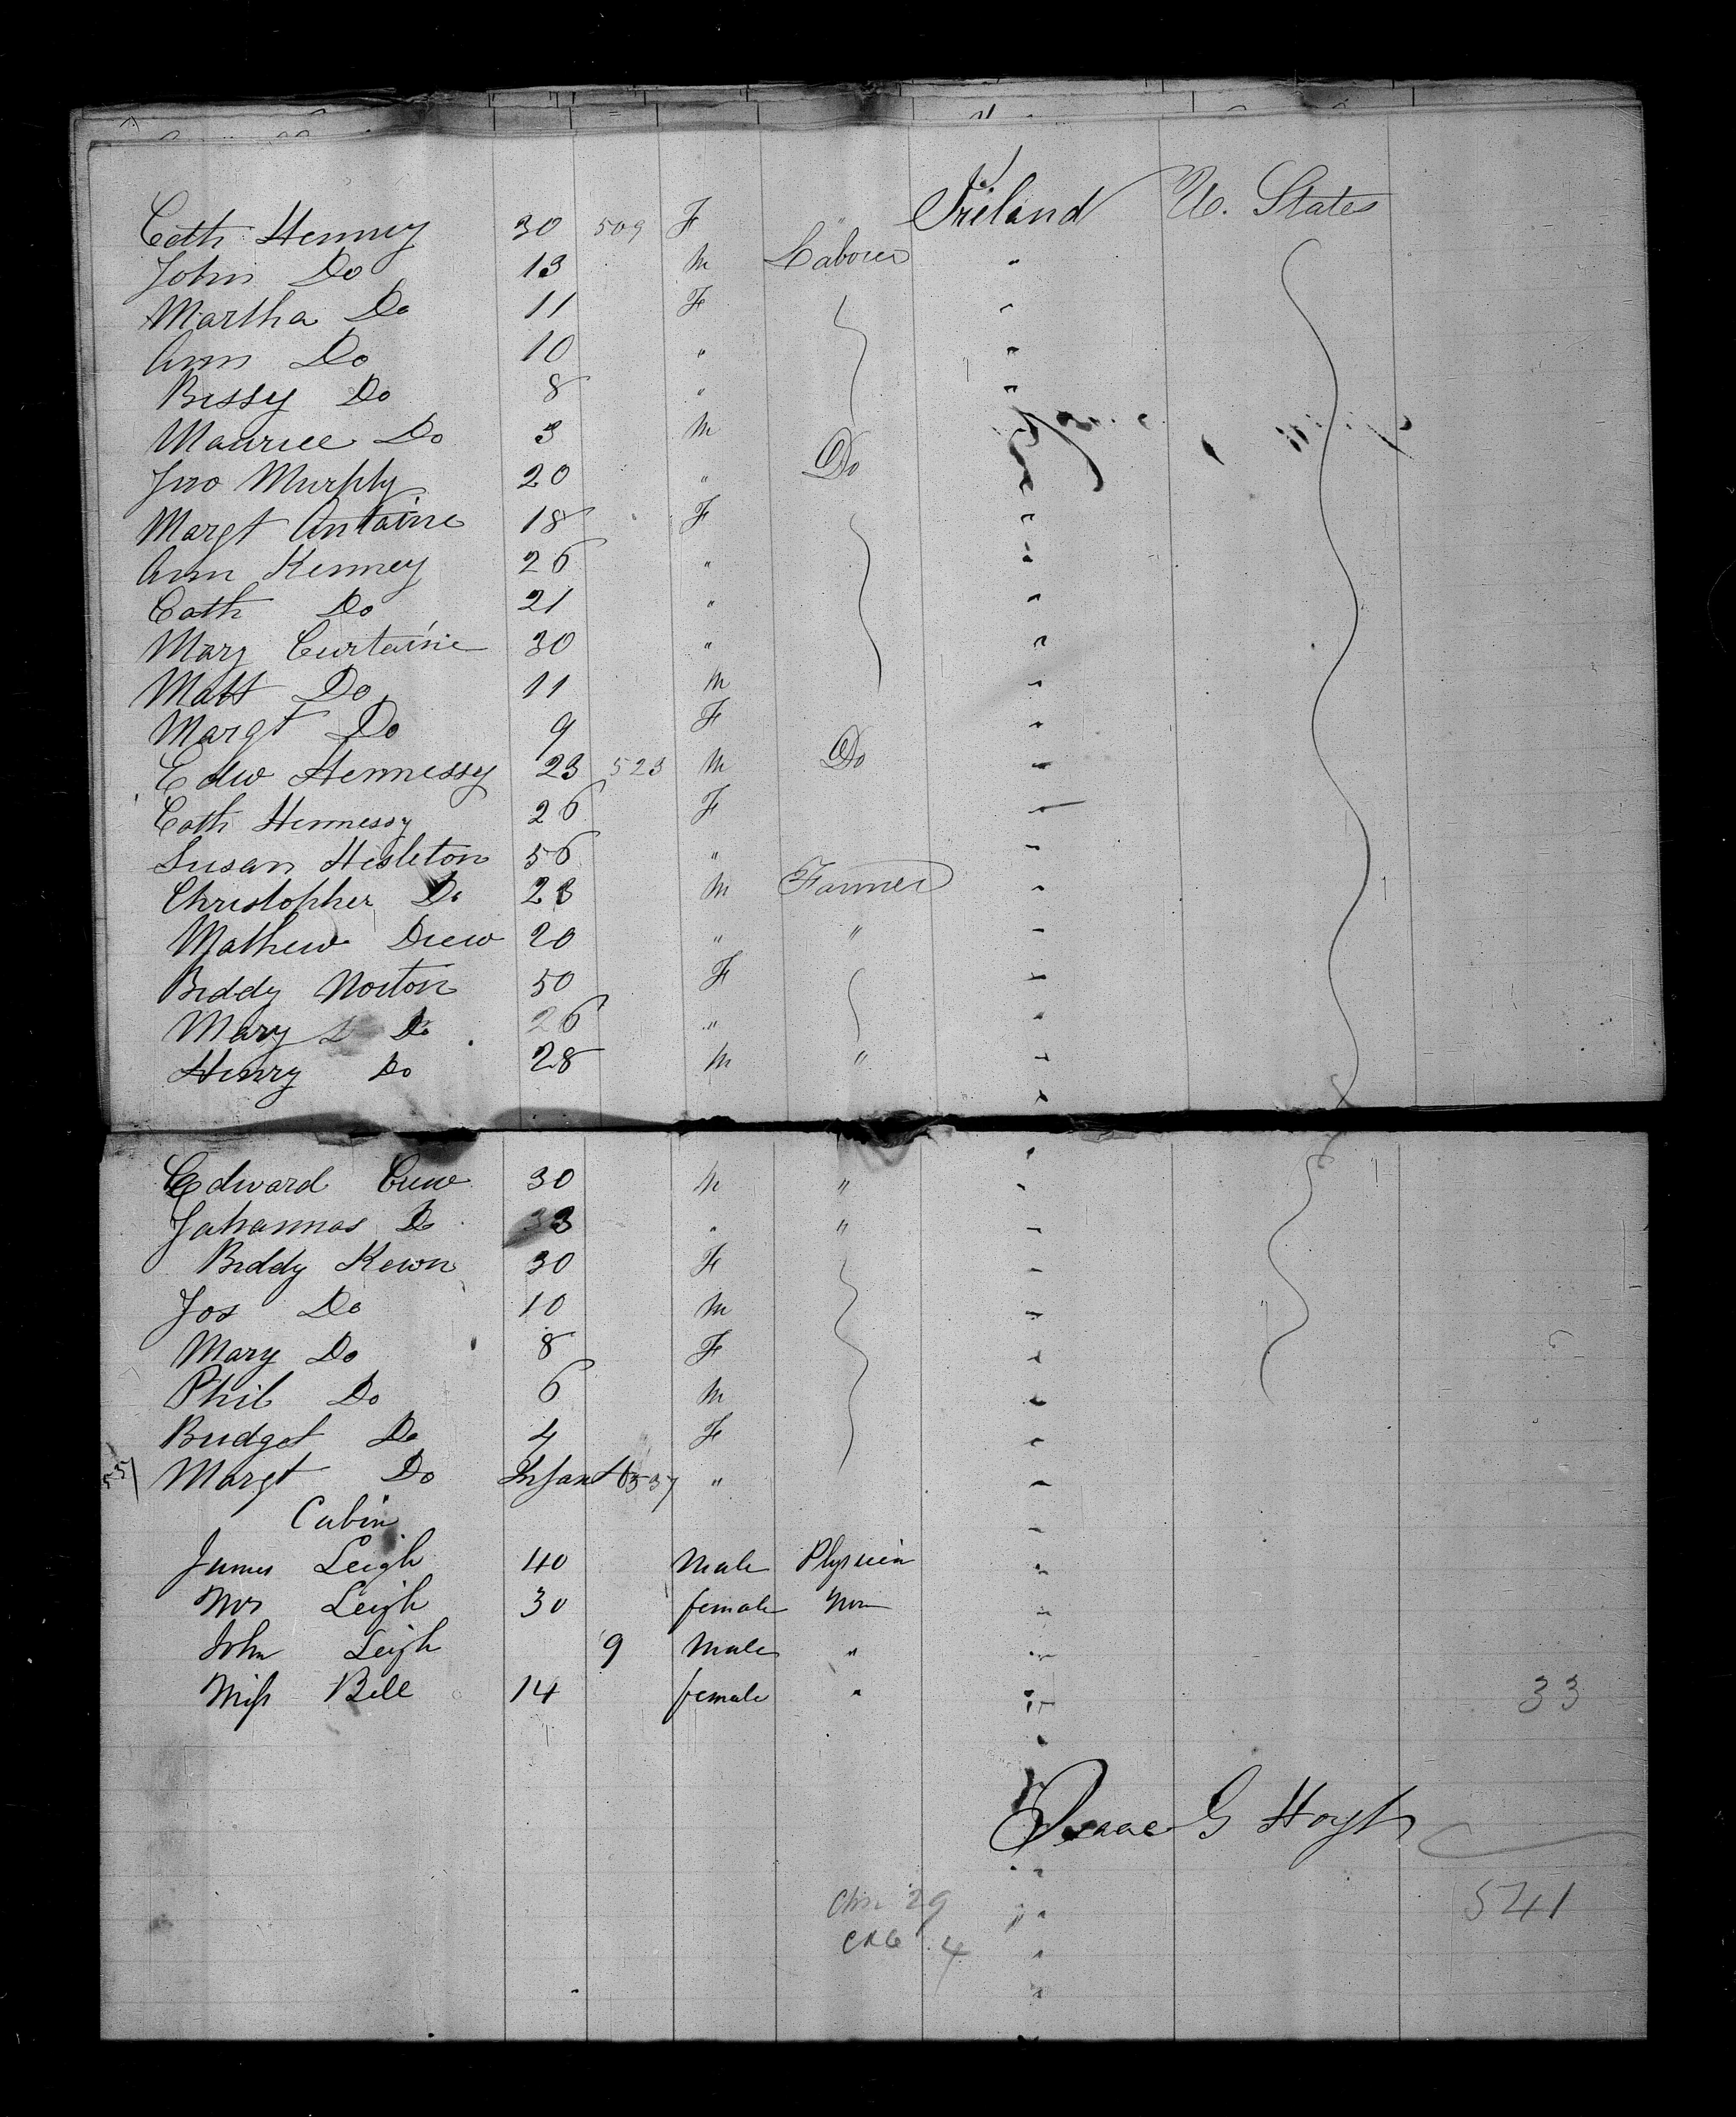 Cath Henney 30 509 F " Ireland U. States
John Do 13 M Laborer "
Martha Do 11 F "
Ann Do 10 " "
Bessy Do 8 " "
Maurice Do 3 M "
Jno Murphy 20 " Do "
Margt Antaine 18 F "
Ann Kenney 26 " "
Cath Do 21 " "
Mary Curtaine 30 " "
Matt Do 11 M "
Margt Do 9 F "
Edw Hennessy 23 523 M Do "
Cath Hennessy 26 F "
Susan Hesleton 56 " "
Christopher Do 23 M Farmer "
Mathew Drew 20 " " "
Biddy Norton 50 F "
Mary Do 26 " "
Henry Do 28 M " "
Edward Crew 30 M " "
Johannas Do 33 " " "
Biddy Kewn 30 F "
Jos Do 10 M "
Mary Do 8 F "
Phil Do 6 M "
Bridget Do 4 F "
Margt Do Infant 537 " "
Cabin
James Leigh 40 Male Physician "
Mrs Leigh 30 female Non "
John Leigh 9 Male " "
Miss Bell 14 female " " 33
Isaac G Hoyt
541
29
4